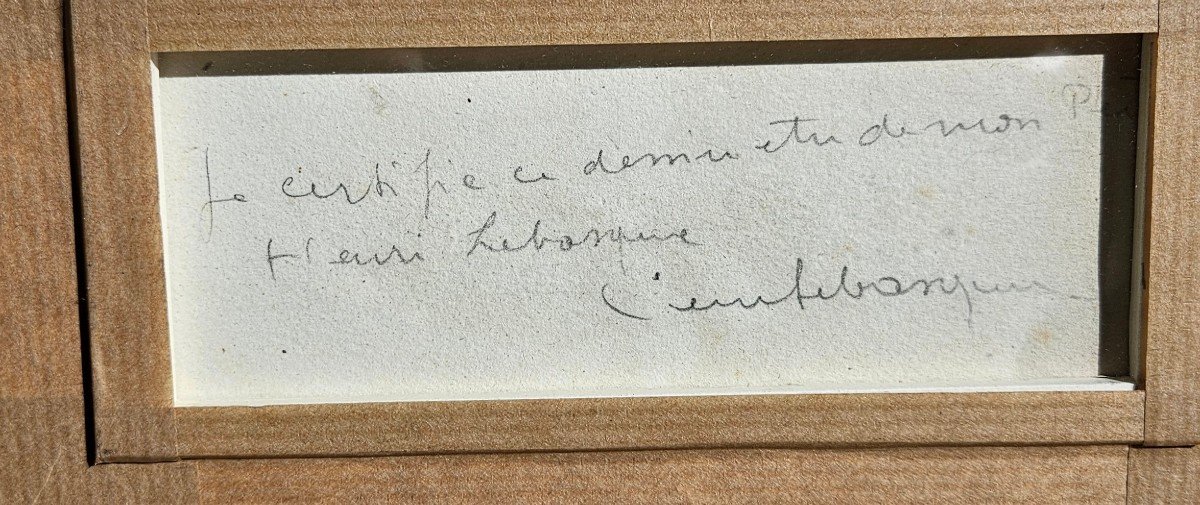 Je certifie ce dessin etre de mon
Henri Lebasque
Lebasque